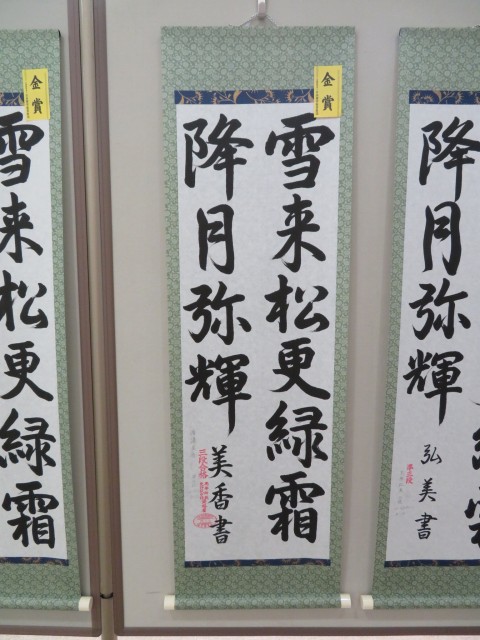 金賞
雪来松更緑霜
降月弥輝
美香書
三段合格
金賞
雪来松更緑霜
降月弥輝
弘美書
準三段